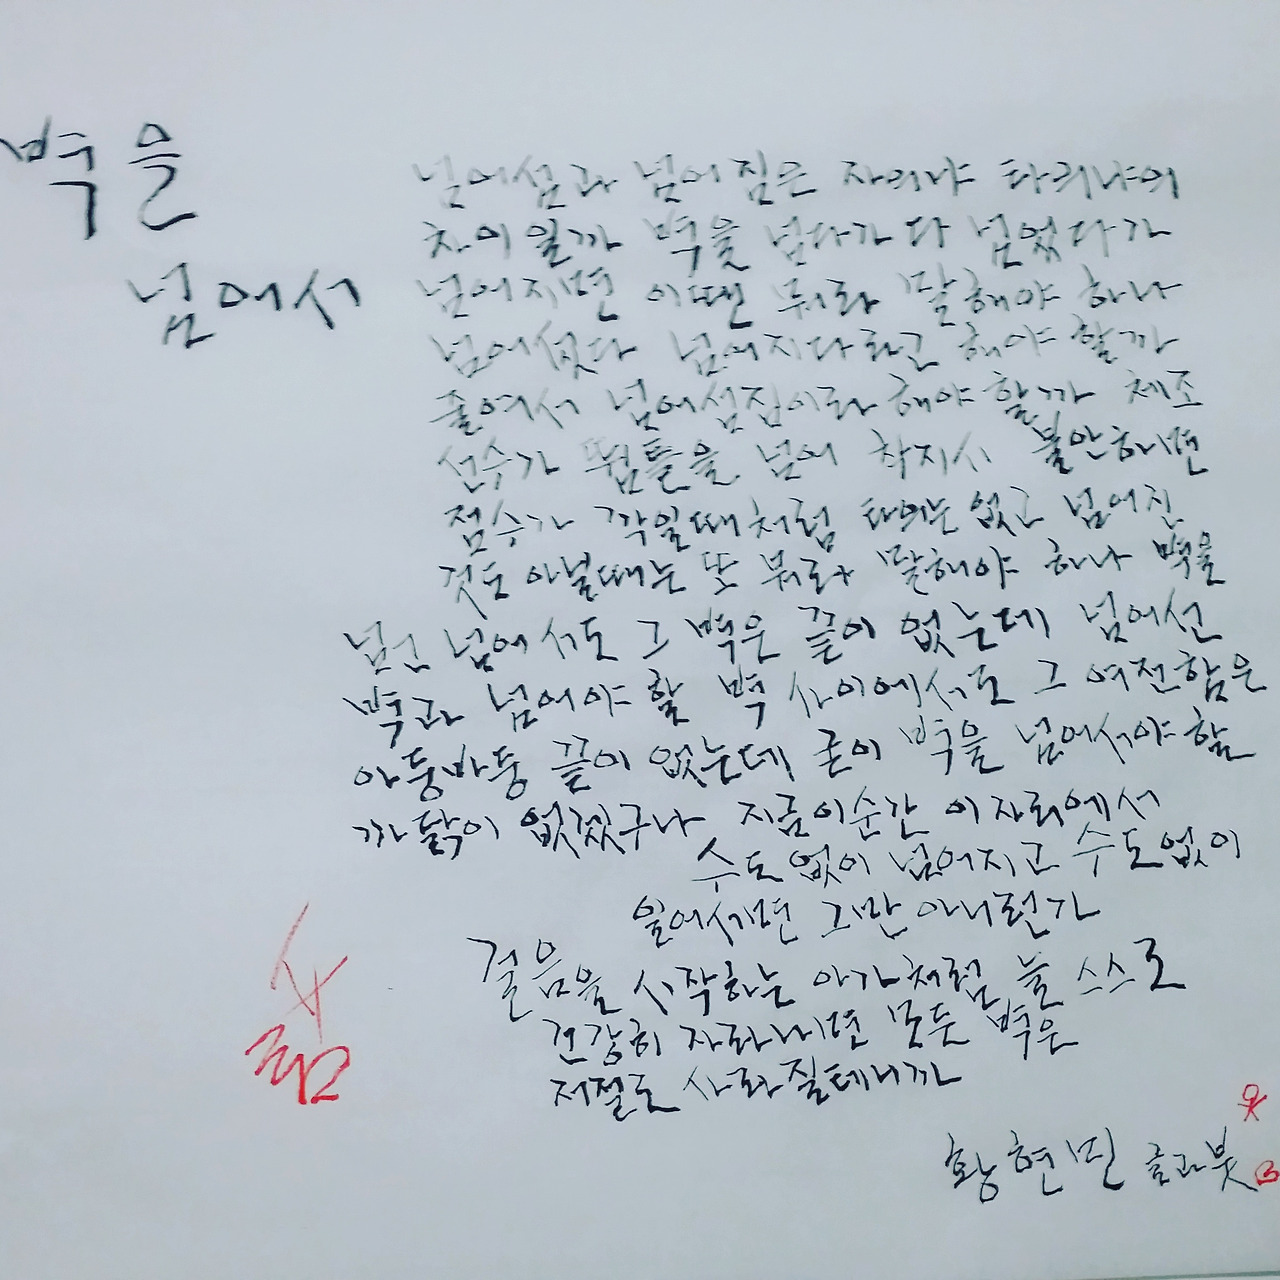 벽을
넘어서
넘어섬과 넘어짐은 자의냐 타의냐의
차이일까 벽을 넘다가 다 넘었다가
넘어지면 이땐 뭐라 말해야 하나
넘어섰다 넘어지다라고 해야 할까
줄여서 넘어섬짐이라 해야 할까 체조
선수가 뜀틀을 넘어 착지시 불안하면
점수가 깍일때처럼 타의는 없고 넘어진
것도 아닐때는 또 뭐라 말해야 하나 벽을
넘고 넘어서도 그 벽은 끝이 없는데 넘어선
벽과 넘어야 할 벽 사이에서도 그 여전함은
아둥바둥 끝이 없는데 굳이 벽을 넘어서야 할
까닭이 없겠구나 지금이순간 이 자리에서
수도없이 넘어지고 수도없이
일어서면 그만 아니런가
걸음을 시작하는 아가처럼 늘 스스로
건강히 자라나면 모든 벽은
저절로 사라질테니까
황현민 글과붓